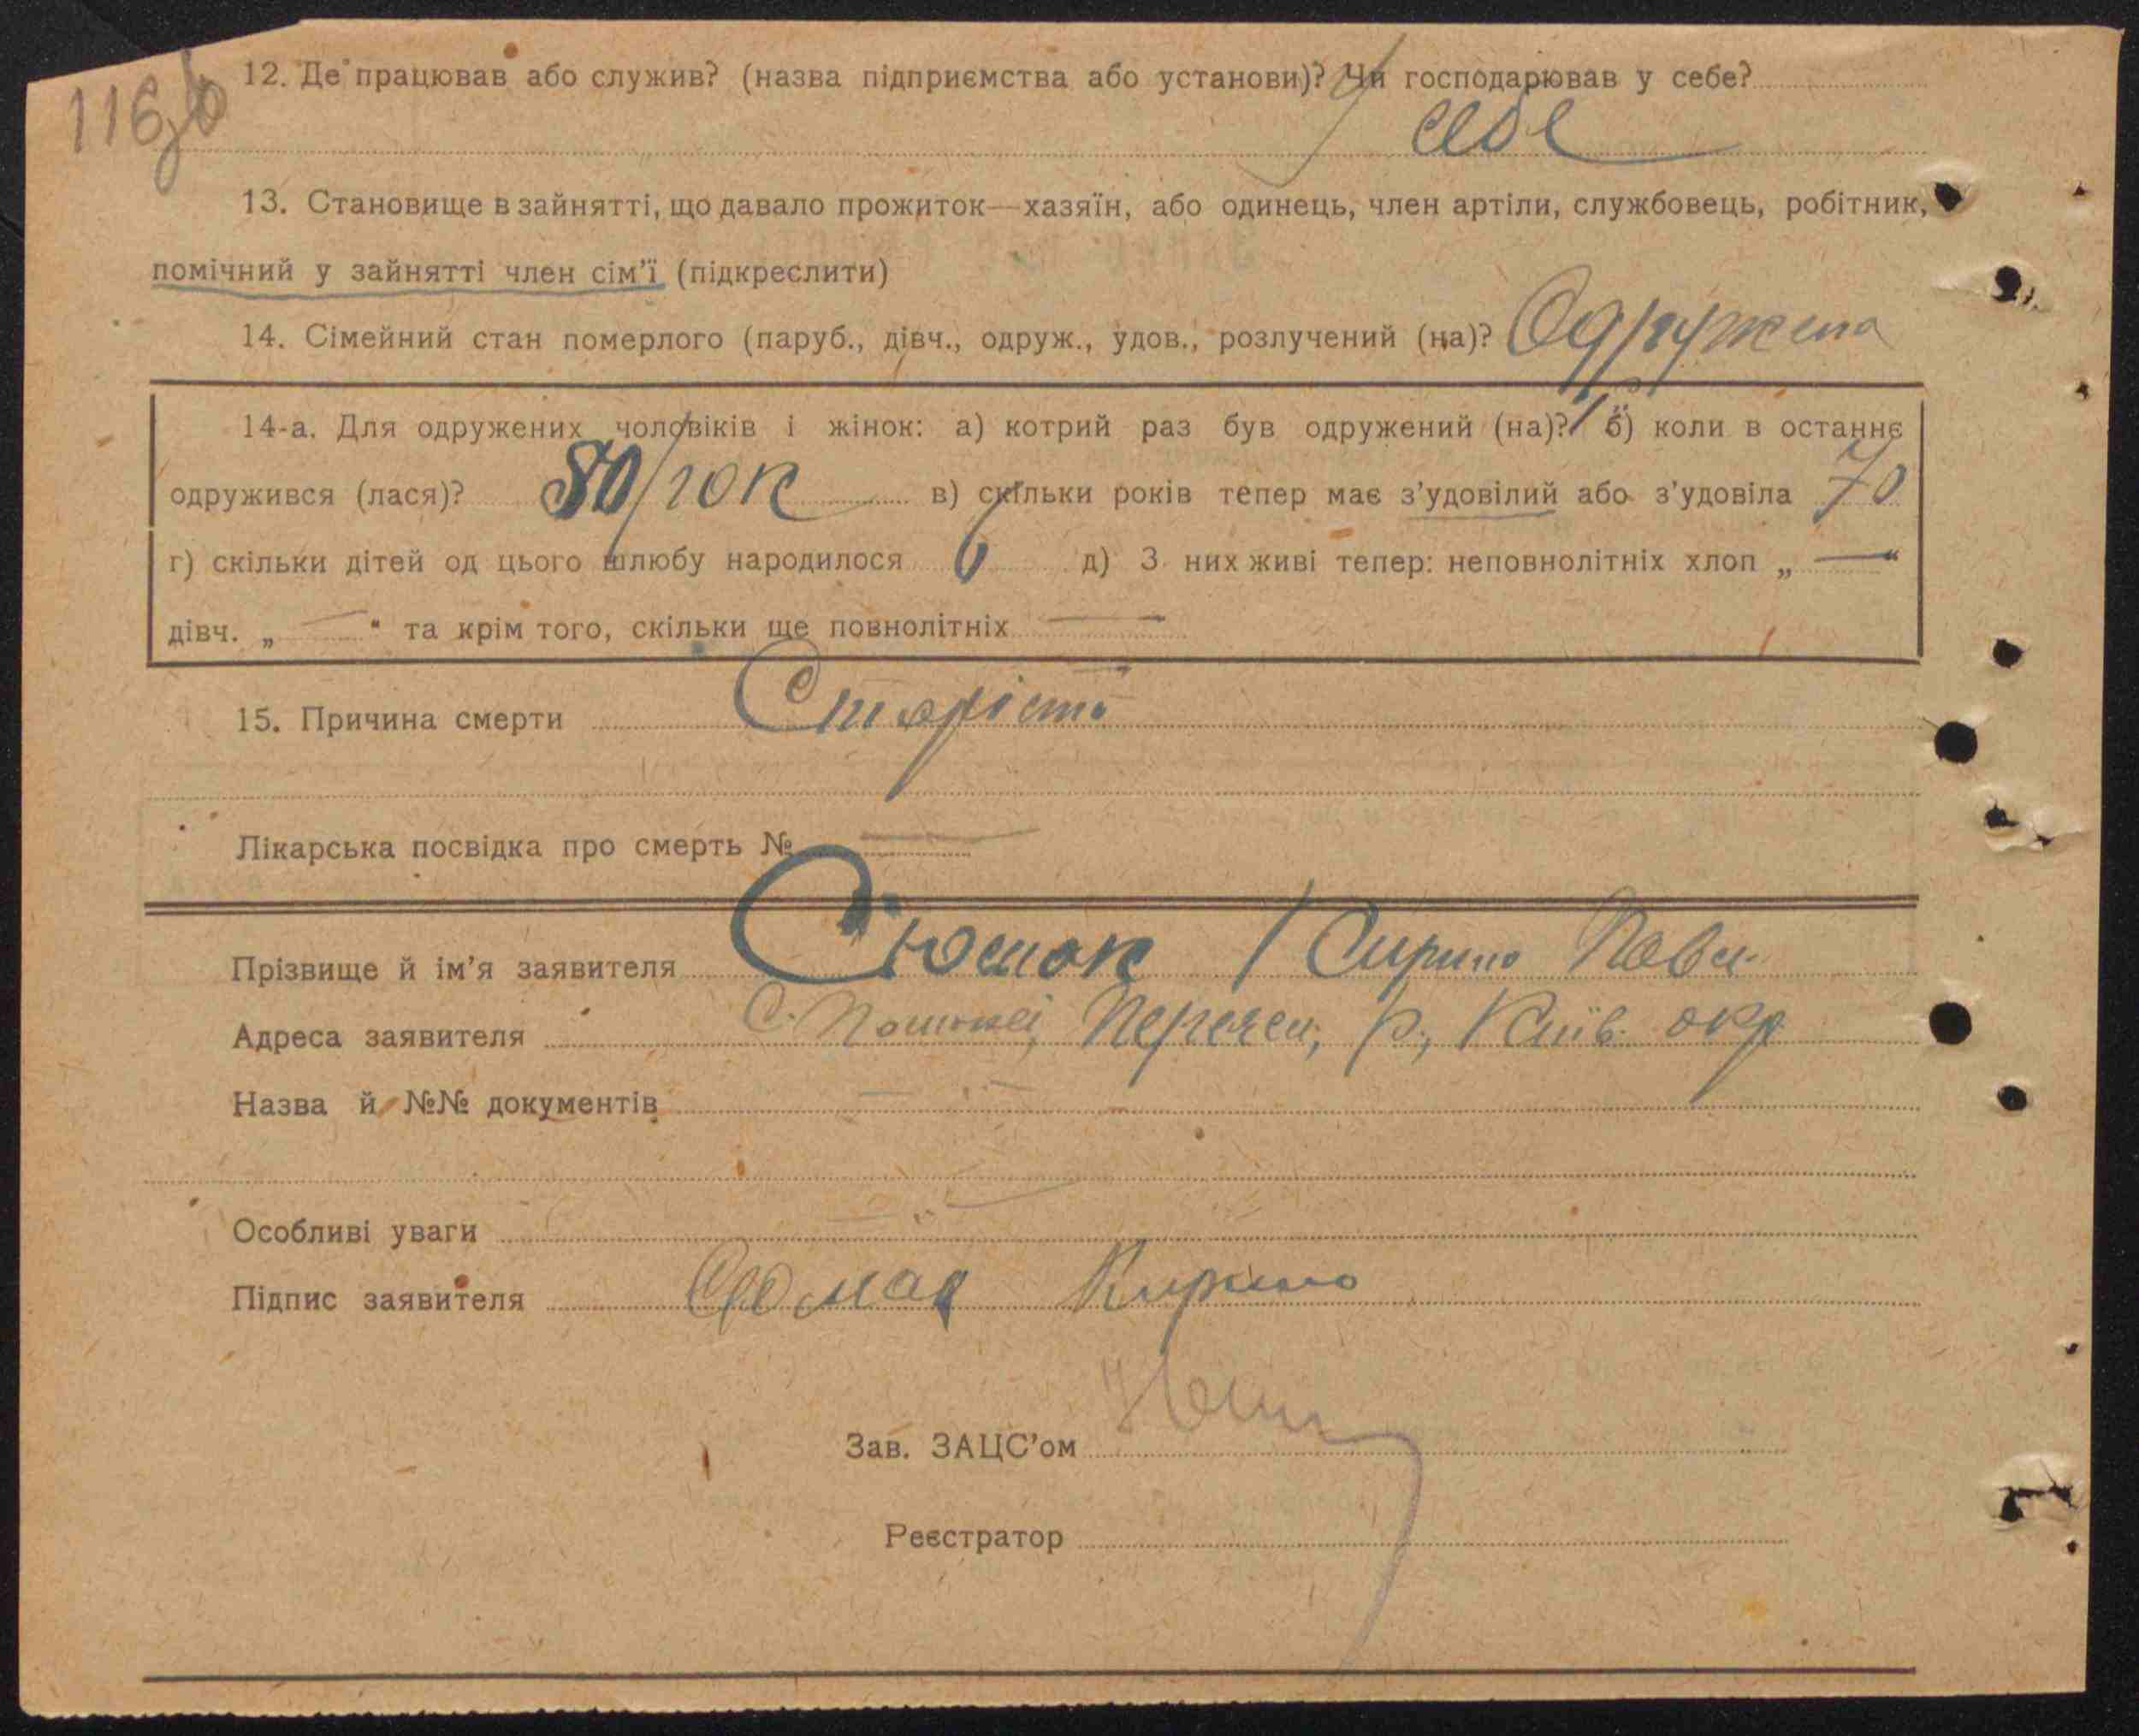 116
12. Де працював або служив? (назва підприємства або установи)? Чи господарював у себе?
У себе
13. Становище в зайнятті, що давало прожиток—хазяїн, або одинець, член артіли, службовець, робітник,
помічний у зайнятті член сім'ї (підкреслити)
14. Сімейний стан померлого (паруб., дівч., одруж., удов., розлучений (на)? Одружена
14-а. Для одружених чоловіків і жінок: а) котрий раз був одружений (на)? 1 б) коли в останнє
одружився (лася)? 80/рок в) скільки років тепер має з'удовілий або з'удовіла 70
г) скільки дітей од цього шлюбу народилося 6 д) З них живі тепер: неповнолітніх хлоп „ — "
дівч. „ — " та крім того, скільки ще повнолітніх —
15. Причина смерти Старість
Лікарська посвідка про смерть № —
Прізвище й ім'я заявителя Кирило Павл.
Адреса заявителя с. р, Київ. окр
Назва й №№ документів —
Особливі уваги — " —
Підпис заявителя Кирило
Зав. ЗАЦС'ом
Реєстратор